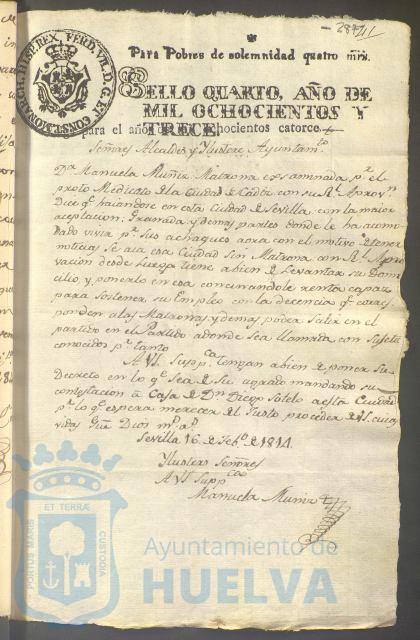 287//
Para Pobres de solemnidad quatro mrs.
SELLO QUARTO, AÑO DE
MIL OCHOCIENTOS Y
TRECE.
para el año ochocientos catorce
Señores Alcaldes y Yllustre Ayuntamto
Da Manuela Muñiz Matrona examinada pr el
proto Medicato de la Ciudad de Cadiz con su Rl Aprovn
Dice qe haiandose en esta Ciudad de Sevilla, con la maior
aceptacion, Granada y demas partes donde le ha acomo
dado vivir pr sus achaques aora con el motivo de tener
noticias se aia esa Ciudad sin Matrona con Rl Apro
vacion desde luego tiene a bien de Levantar su Domi
cilio, y ponerlo en esa concurriendole renta capaz
para sostener su Empleo con la decencia qe corres
ponden a las Matronas y demas poder salir en el
partido en el Partido adonde sea llamada con sujetos
conocidos pr tanto
A VS Suppca tengan a bien de poner su
Decreto en lo qe sea de su agrado mandando su
contestacion a Casa de Dn Diego Sotelo a esta Ciudad
pr lo qe espera merecer del Justo proceder de VS cuias
vidas Gue Dios ms as
Sevilla 16 de Febo de 1814
Yllustres Señores
A VS Suppca
Manuela Muñiz
PORTUS MARIS
ET TERRAE
CUSTODIA
Ayuntamiento de
HUELVA